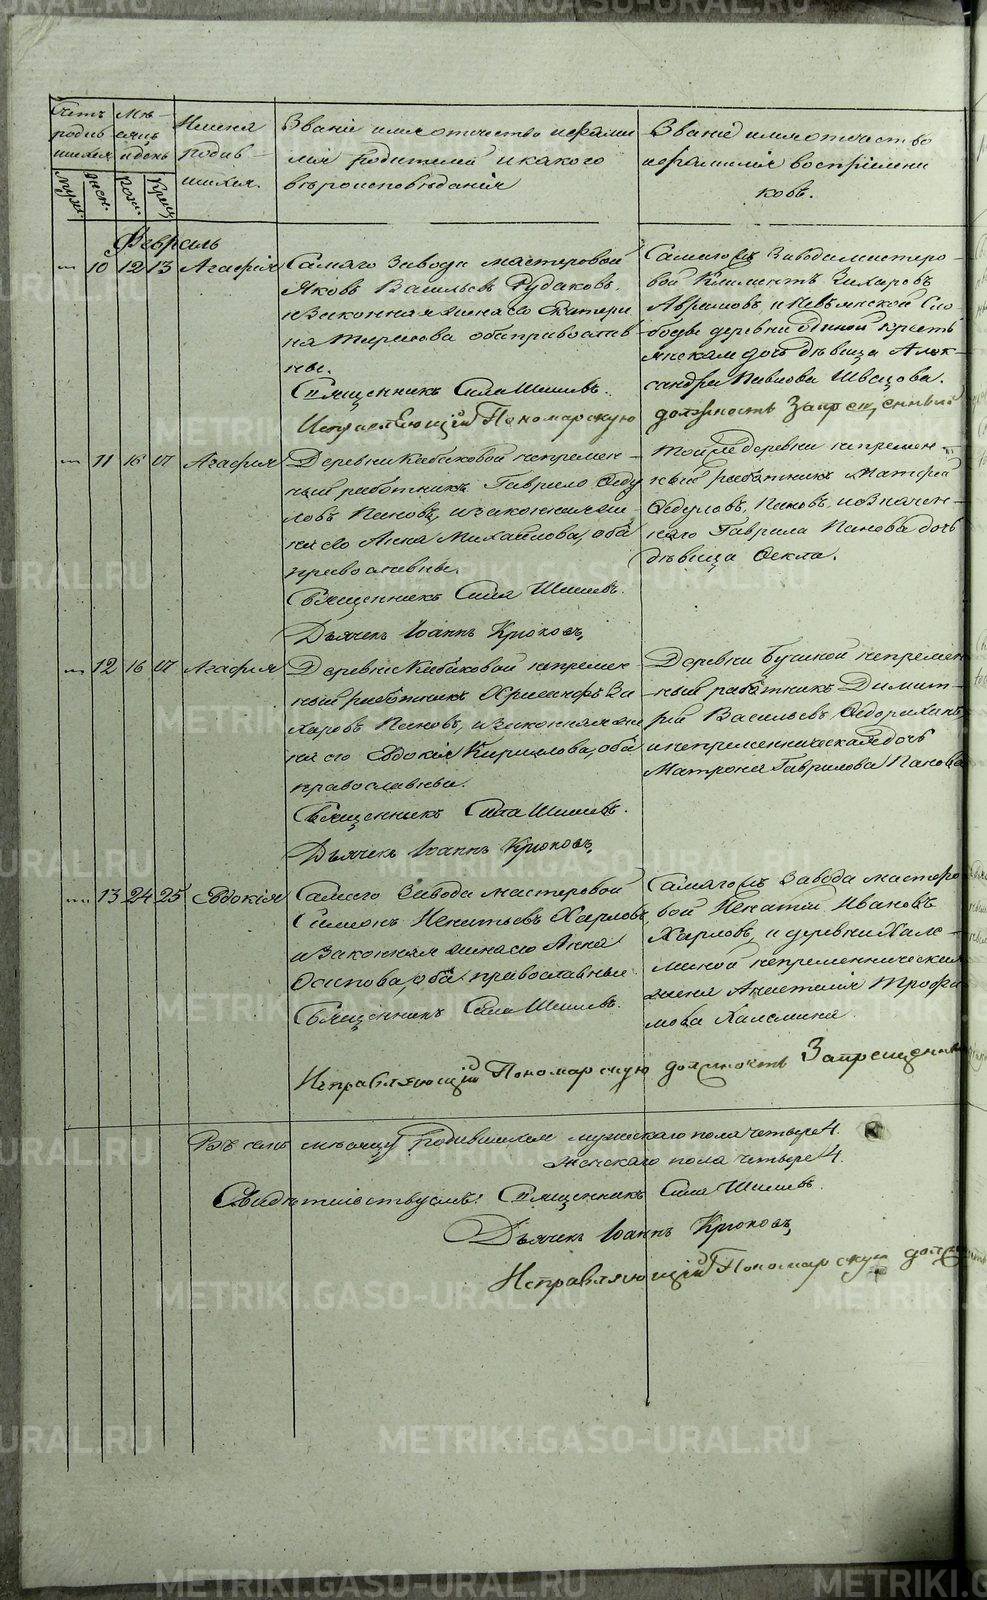 METRIKI.GASO-URAL.RU
Счетъ родившихся
Мѣсяць и день
Имена родившихся.
Званіе имя отечество и фамилія родителей и какого вѣроисповѣданія
Званіе имя отечество и фамилія воспріемниковъ.
муж. женс. рожд. крещ.
Февраль
10 12 13 Агафія
Самаго Завода мастеровой
Яковъ Васильевъ Рудаковъ,
и Законная жена его Екатери
на оба православ
ны.
Священникъ Сила Шишевъ.
Исправляющій Пономарскую должность Запрещенный
Самаго съ Завода мастеро-
вой Климентъ
и Невьянской Сло
боды деревни кресть
янская дочь дѣвица Алек-
сандра Павлова Швецова.
11 16 17 Агафия
Деревни Кабаковой непремен-
ный работникъ Гаврило Ѳеду
ловъ Пановъ, и законная же
на его Анна Михайлова, оба
православны.
Священникъ Сила Шишевъ.
Дьячекъ Іоаннъ Крюковъ,
Тойже деревни непремен-
ный работникъ Матфей
Ѳедуловъ, Пановъ, и означен-
наго Гаврила Панова дочь
дѣвица Ѳекла.
12 16 17 Агафия
Деревни Кабаковой непремен
ный работникъ Хрисанфъ За
харовъ Пановъ, и законная же
на его Евдокія Кирилова, оба
православны.
Священникъ Сила Шишевъ.
Дьячекъ Іоаннъ Крюковъ,
Деревни непремен
ный работникъ Димит-
рій Васильевъ
и непременническая дочь
Матрона Гаврилова Панова
13 24 25 Евдокія
Самаго Завода мастеровой
Симеонъ Игнатьевъ Харловъ,
и Законная жена его Анна
Осипова, оба православные
Священникъ Сила Шишевъ.
Исправляющій Пономарскую должность Запрещенный
Самаго съ Завода мастеро
вой Игнатій Ивановъ
Харловъ, и деревни Каль-
миной непременническая
жена Анастасія Трофи
мова Калемина
Въ семъ мѣсяцѣ родившихся мужескаго пола четыре 4.
женскаго пола четыре 4.
Свидѣтельствуемъ: Священникъ Сила Шишевъ.
Дьячекъ Іоаннъ Крюковъ,
Исправляющій Пономарскую